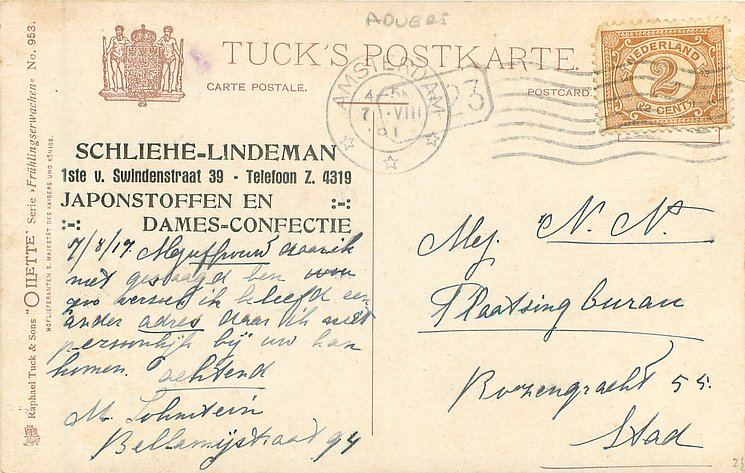 ADVERT
TUCK'S POSTKARTE.
CARTE POSTALE.
POSTCARD
NEDERLAND
2
(2 CENT)
AMSTERDAM
7 VIII
23
SCHLIEHE-LINDEMAN
1ste v. Swindenstraat 39 - Telefoon Z. 4319
JAPONSTOFFEN EN :-:
:-: DAMES-CONFECTIE
7/8/17. Mejuffrouw daar ik
niet geslaagd ben
verzoek ik beleefd een
ander adres daar ik niet
persoonlijk bij uw kan
komen. achtend
M.
Bellamijstraat 94
Mej. N. N.
Plaatsing bureau
Rozengracht 55.
Stad
Raphael Tuck & Sons "OILETTE" Serie „Frühlingserwachen" No. 953.
HOFLIEFERANTEN S. MAJESTÄT DES KAISERS UND KÖNIGS.